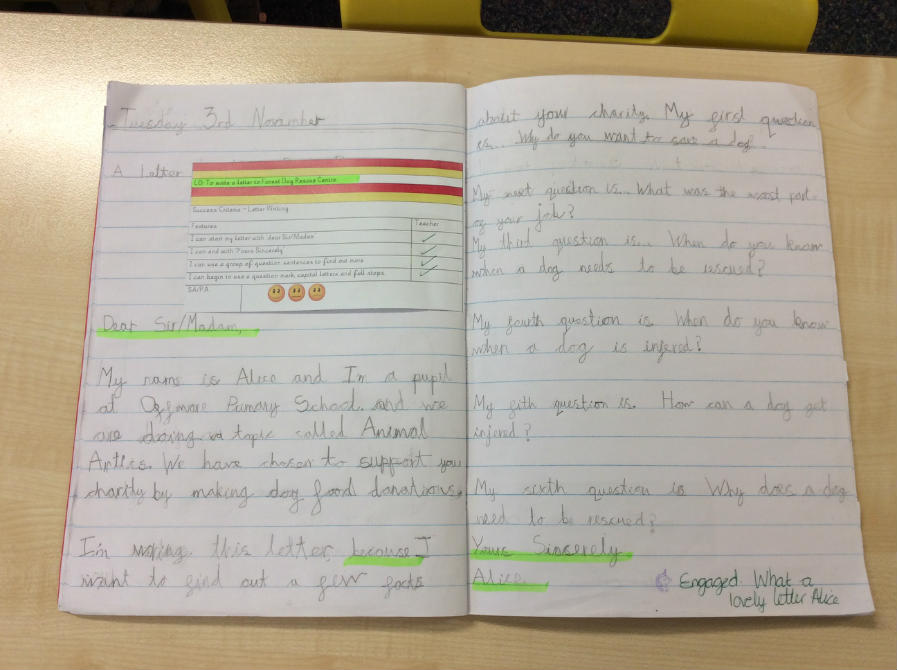 Tuesday 3rd November
A Letter
LO: To write a letter to Forest Dog Rescue Centre.
Success Criteria - Letter Writing
Features
Teacher
I can start my letter with 'dear Sir/Madam'
I can end with 'Yours Sincerely'
I can use a group of question sentences to find out more.
I can begin to use a question mark, capital letters and full stops.
SA/PA
Dear Sir/Madam,
My name is Alice and I'm a pupil
at Offmore Primary School. and we
are doing a topic called Animal
Antics. We have chosen to support you
charity by making dog food donations.
I'm writing this letter because I
want to find out a few facts
about your charity. My first question
is... Why do you want to save a dog.
My next question is... What was the worst part
of your job?
My third question is... When do you know
when a dog needs to be rescued?
My fourth question is. When do you know
when a dog is injered?
My fith question is. How can a dog get
injered?
My sixth question is Why does a dog
need to be rescued?
Yours Sinserely
Alice
Engaged. What a
lovely letter Alice